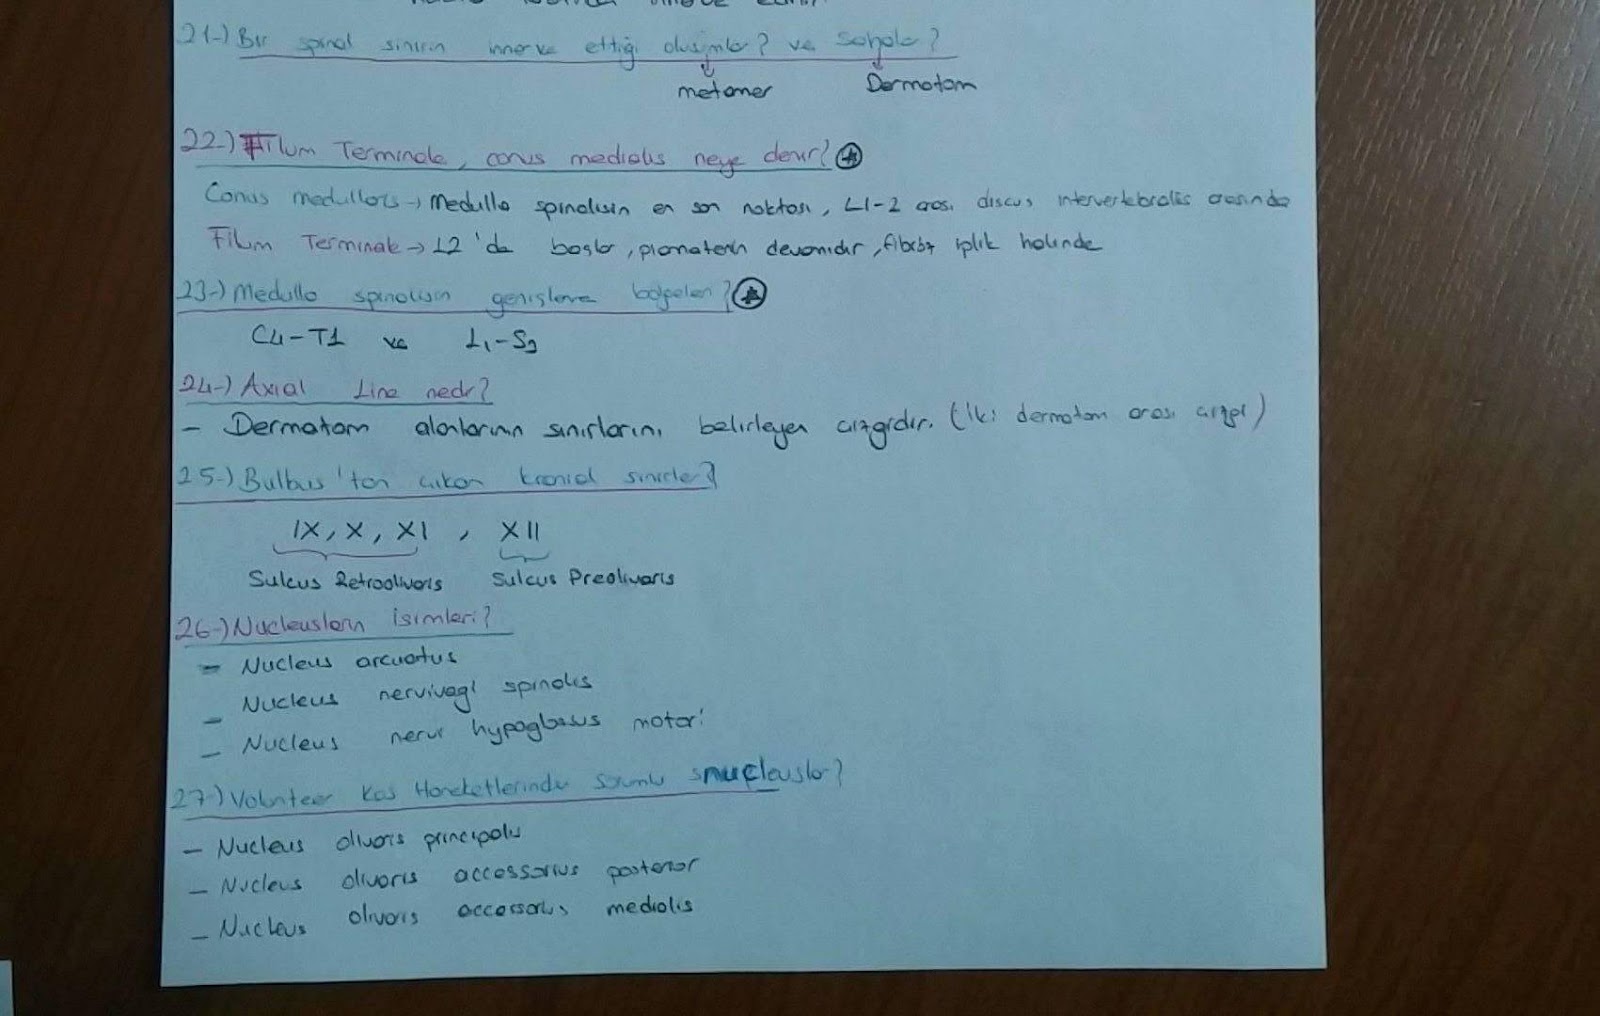 21-) Bir spinal sinirin innerve ettiği oluşumlar? ve sahalar?
metamer Dermatom
22-) Filum Terminale, conus medialis neye denir?
Conus medullaris → Medulla spinalisin en son noktası, L1-2 arası discus intervertebralis arasında
Filum Terminale → L2'da başlar, piamaterin devamıdır, fibröz iplik halinde
23-) Medulla spinalisin genişleme bölgeleri?
C4-T1 ve L1-S2
24-) Axial Line nedir?
- Dermatom alanlarının sınırlarını belirleyen çizgidir. (İki dermatom arası çizgi)
25-) Bulbus'tan çıkan kranial sinirler?
IX, X, XI , XII
Sulcus Retroolivaris Sulcus Preolivaris
26-) Nucleusların isimleri?
- Nucleus arcuatus
- Nucleus nervivagi spinalis
- Nucleus nervi hypoglossus motori
27-) Volunteer Kas Hareketlerinden sorumlu nucleuslar?
- Nucleus olivaris principalis
- Nucleus olivaris accessorius posterior
- Nucleus olivaris accessorius medialis